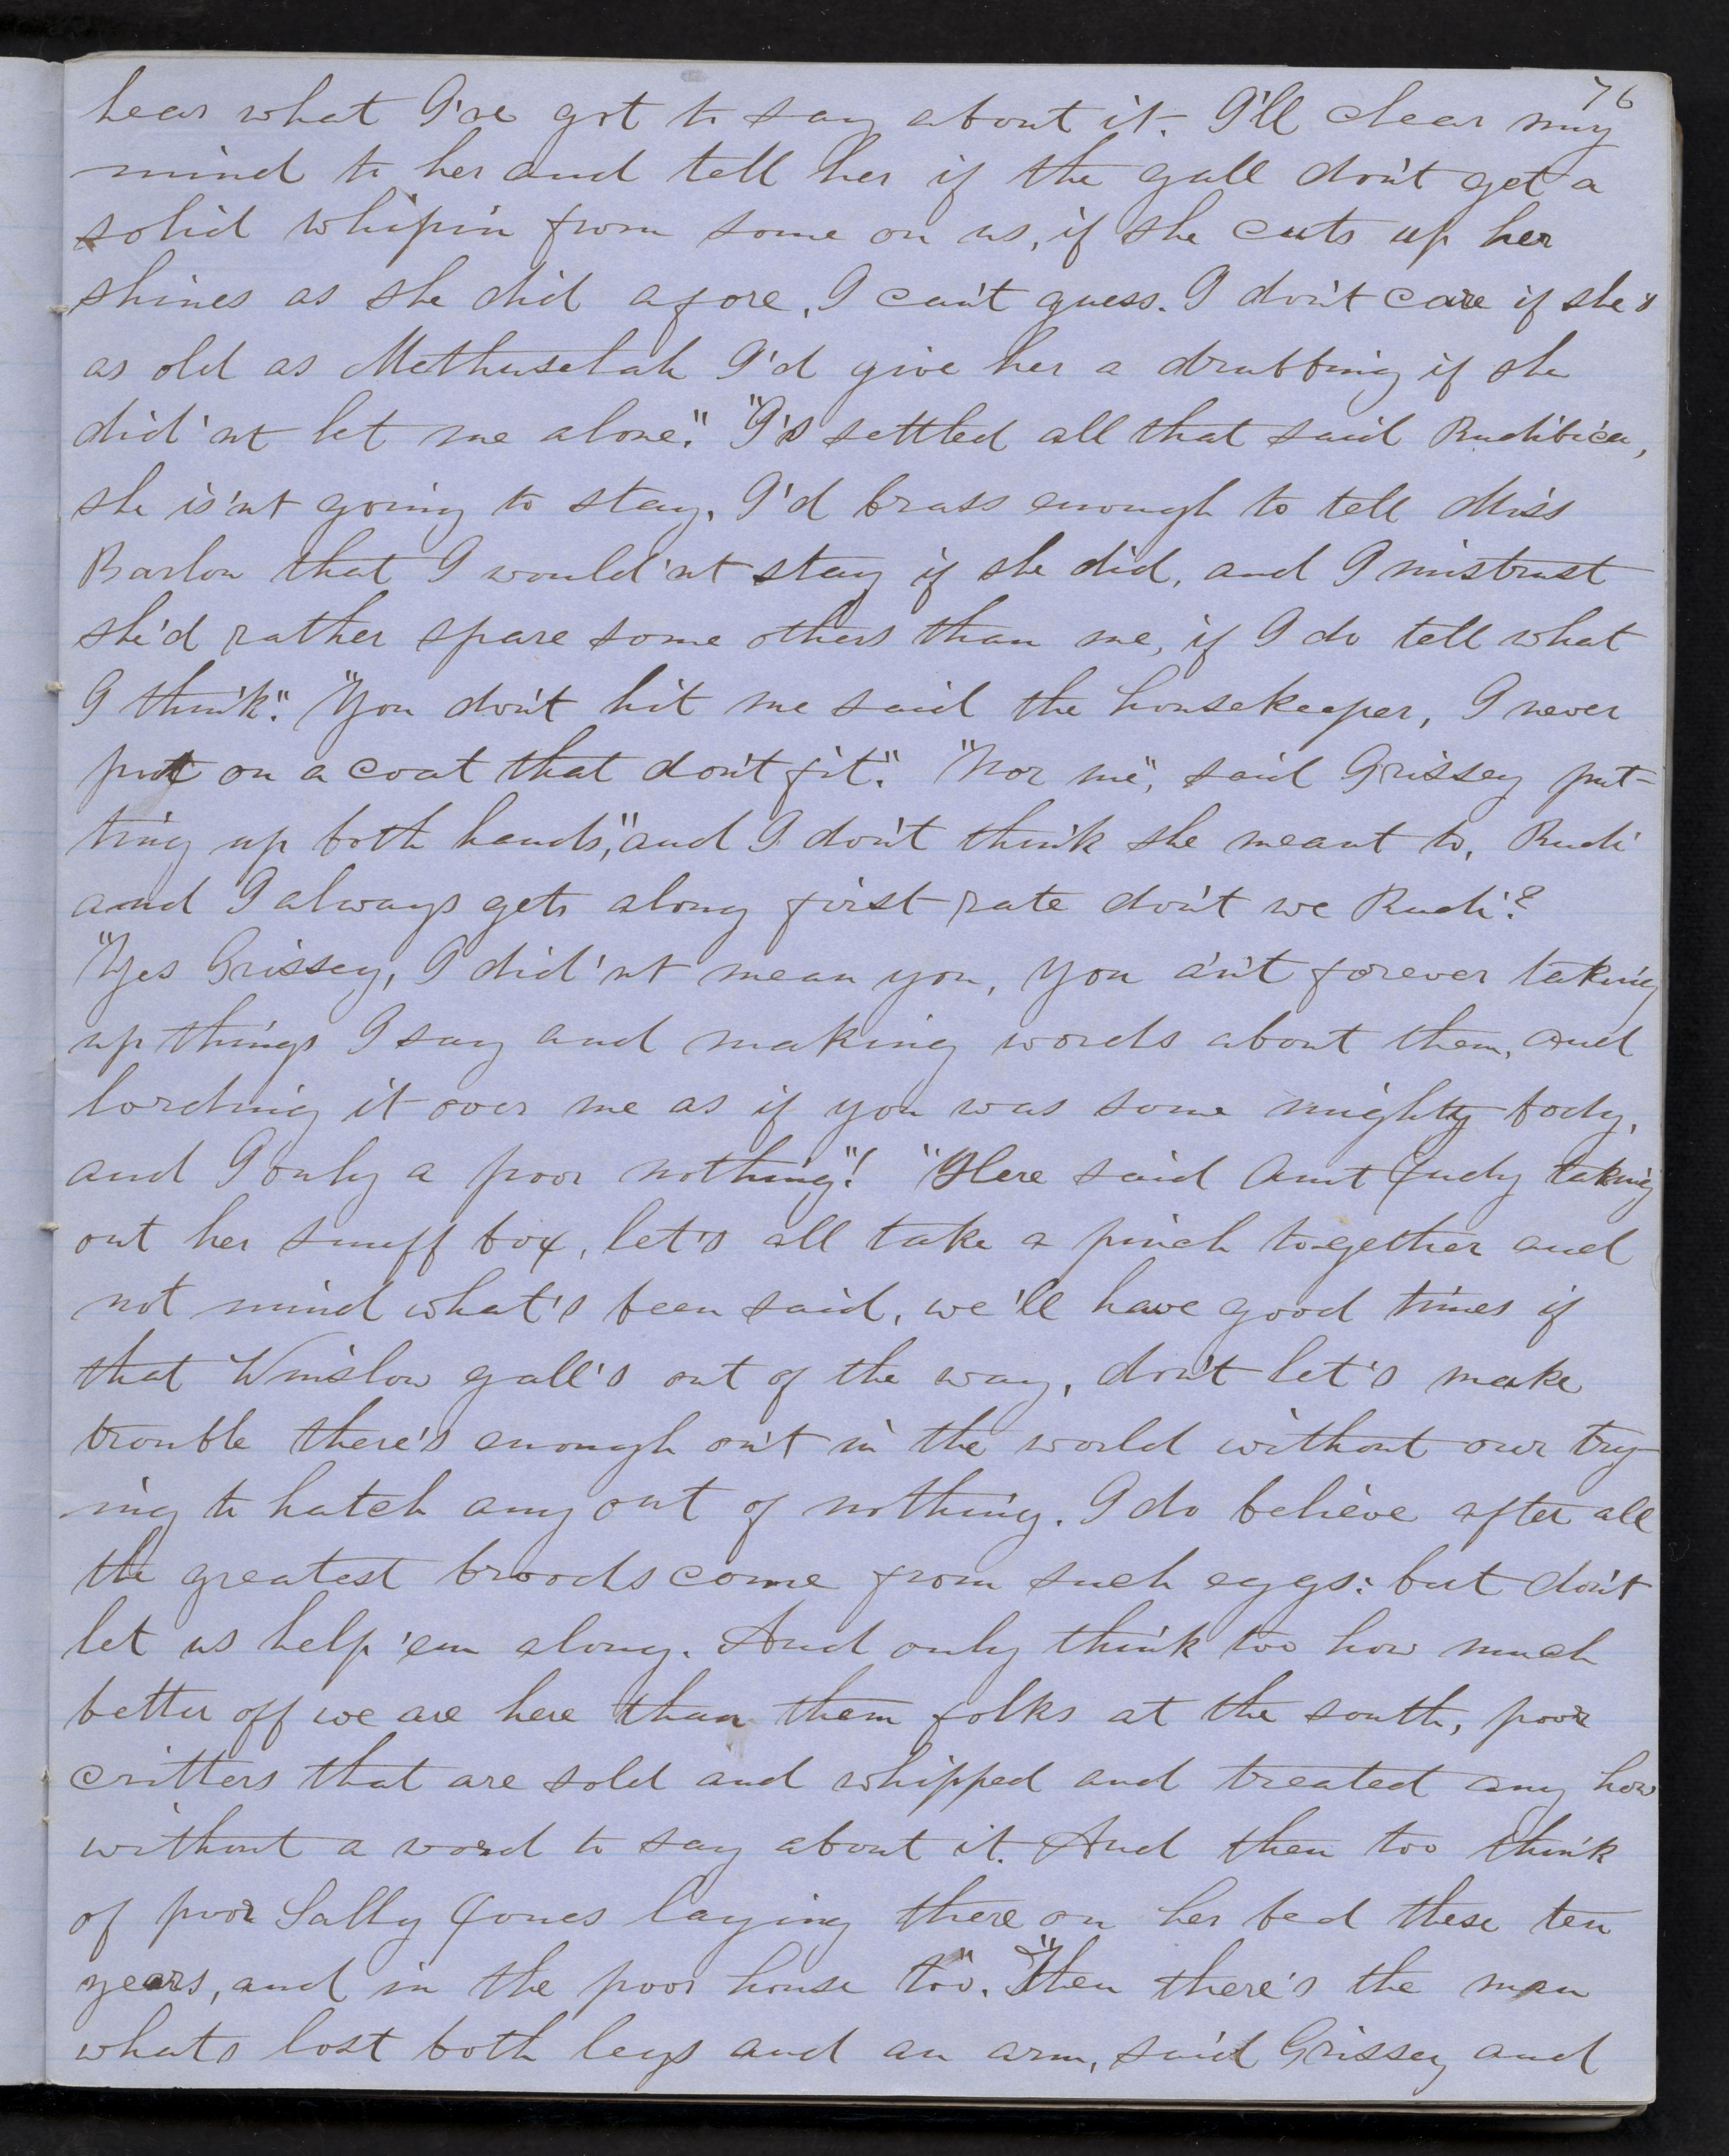 76
hear what I've got to say about it. I'll clear my
mind to her and tell her if the gall don't get a
solid whipin from some on us, if she cuts up her
shines as she did afore, I can't guess. I don't care if she's
as old as Methuselah I'd give her a drubbing if she
did'nt let me alone." "I's settled all that said Rudibica,
she is'nt going to stay. I'd brass enough to tell Miss
Barlow that I would'nt stay if she did, and I mistrust
she'd rather spare some others than me, if I do tell what
I think." "You don't hit me said the housekeeper, I never
put on a coat that don't fit." "Nor me", said Grissey put-
ting up both hands, "and I don't think she meant to, Rudi
and I always gets along first rate don't we Rudi?
"Yes Grissey, I did'nt mean you, you ain't forever taking
up things I say and making words about them, and
lording it over me as if you was some mighty body,
and I only a poor nothing"! "Here said Aunt Judy taking
out her snuff box, let's all take a pinch together and
not mind what's been said, we'll have good times if
that Winslow gall's out of the way, don't let's make
trouble there's enough on't in the world without our try
ing to hatch any out of nothing. I do believe after all
the greatest broods come from such eggs: but don't
let us help 'em along. And only think too how much
better off we are here than them folks at the south, poor
critters that are sold and whipped and treated any how
without a word to say about it. And then too think
of poor Sally Jones laying there on her bed these ten
years, and in the poor house too." "Then there's the man
whats lost both legs and an arm, said Grissey and